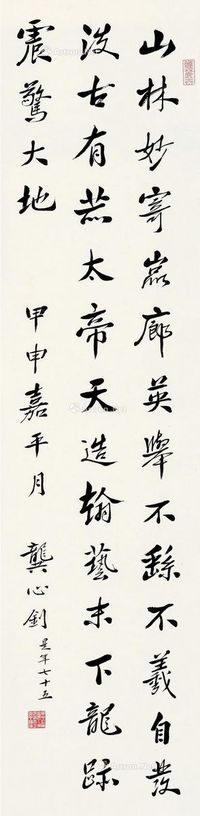 山林妙寄嵓廊英舉不繇不羲自發
淡古有芾太帝天造翰藝末下龍跡
震驚大地
甲申嘉平月 龔心釗 是年七十五